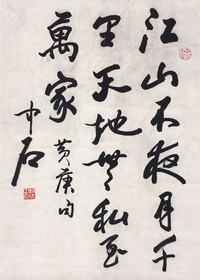 江山不夜月千
里天地無私玉
萬家
黄庚句
中石